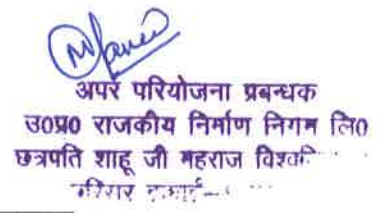 अपर परियोजना प्रबन्धक
उ०प्र० राजकीय निर्माण निगम लि०
छत्रपति शाहू जी महराज